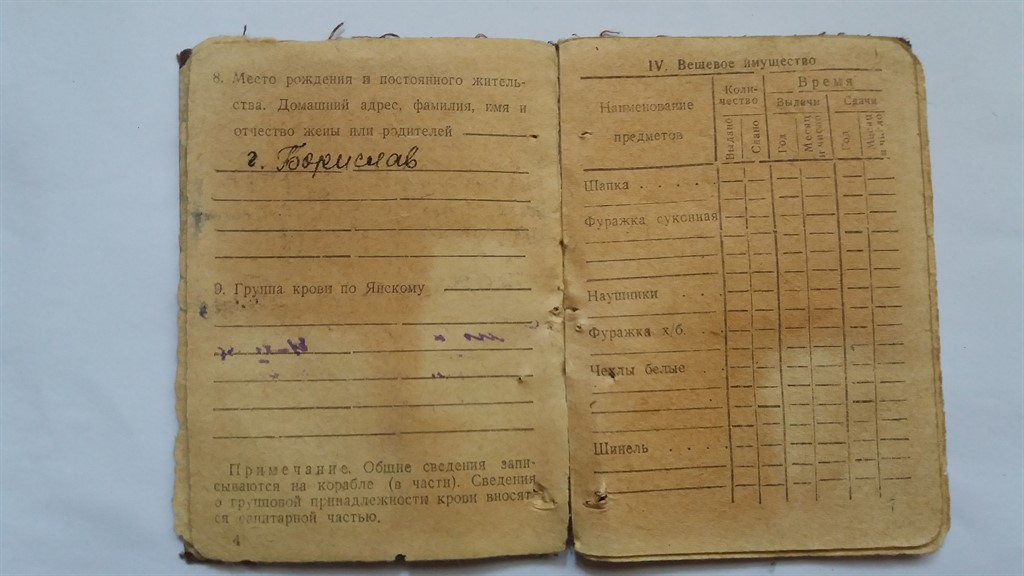 8. Место рождения и постоянного житель-
ства. Домашний адрес, фамилия, имя и
отчество жены или родителей
г. Борислав
9. Группа крови по Янскому
Примечание. Общие сведения запи-
сываются на корабле (в части). Сведения
о групповой принадлежности крови вносят-
ся санитарной частью.
4
IV. Вещевое имущество
Наименование предметов
Коли-
чество
Время
Выдачи
Сдачи
Выдано
Сдано
Год
Месяц и число
Год
Месяц и число
Шапка
Фуражка суконная
Наушники
Фуражка х/б.
Чехлы белые
Шинель